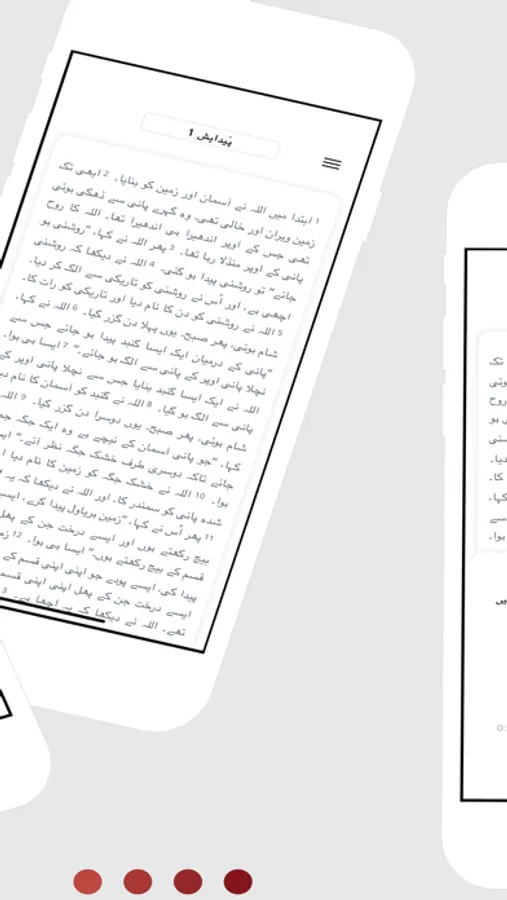 پَیدایش 1
1 ابتدا میں اللہ نے آسمان اور زمین کو بنایا۔ 2 ابھی تک
زمین ویران اور خالی تھی۔ وہ گہرے پانی سے ڈھکی ہوئی
تھی جس کے اوپر اندھیرا ہی اندھیرا تھا۔ اللہ کا روح
پانی کے اوپر منڈلا رہا تھا۔ 3 پھر اللہ نے کہا، ”روشنی ہو
جائے“ تو روشنی پیدا ہو گئی۔ 4 اللہ نے دیکھا کہ روشنی
اچھی ہے، اور اُس نے روشنی کو تاریکی سے الگ کر دیا۔
5 اللہ نے روشنی کو دن کا نام دیا اور تاریکی کو رات کا۔
شام ہوئی، پھر صبح۔ یوں پہلا دن گزر گیا۔ 6 اللہ نے کہا،
”پانی کے درمیان ایک ایسا گنبد پیدا ہو جائے جس سے
نچلا پانی اوپر کے پانی سے الگ ہو جائے۔“ 7 ایسا ہی ہوا۔
اللہ نے ایک ایسا گنبد بنایا جس سے نچلا پانی اوپر کے
پانی سے الگ ہو گیا۔ 8 اللہ نے گنبد کو آسمان کا نام دیا
شام ہوئی، پھر صبح۔ یوں دوسرا دن گزر گیا۔ 9 اللہ
کہا، ”جو پانی آسمان کے نیچے ہے وہ ایک جگہ جمع
جائے تاکہ دوسری طرف خشک جگہ نظر آئے۔“ ایسا
ہوا۔ 10 اللہ نے خشک جگہ کو زمین کا نام دیا
شدہ پانی کو سمندر کا۔ اور اللہ نے دیکھا کہ یہ
11 پھر اُس نے کہا، ”زمین ہریاول پیدا کرے، ایسے
بیج رکھتے ہوں اور ایسے درخت جن کے پھل
قسم کے بیج رکھتے ہوں۔“ ایسا ہی ہوا۔ 12
پیدا کی، ایسے پودے جو اپنی اپنی قسم کے
ایسے درخت جن کے پھل اپنی اپنی قسم
تھے۔ اللہ نے دیکھا کہ یہ اچھا ہے۔
تک
ہوئی
روح
ہو
دیا۔
کا۔
کہا،
سے
ہوا۔